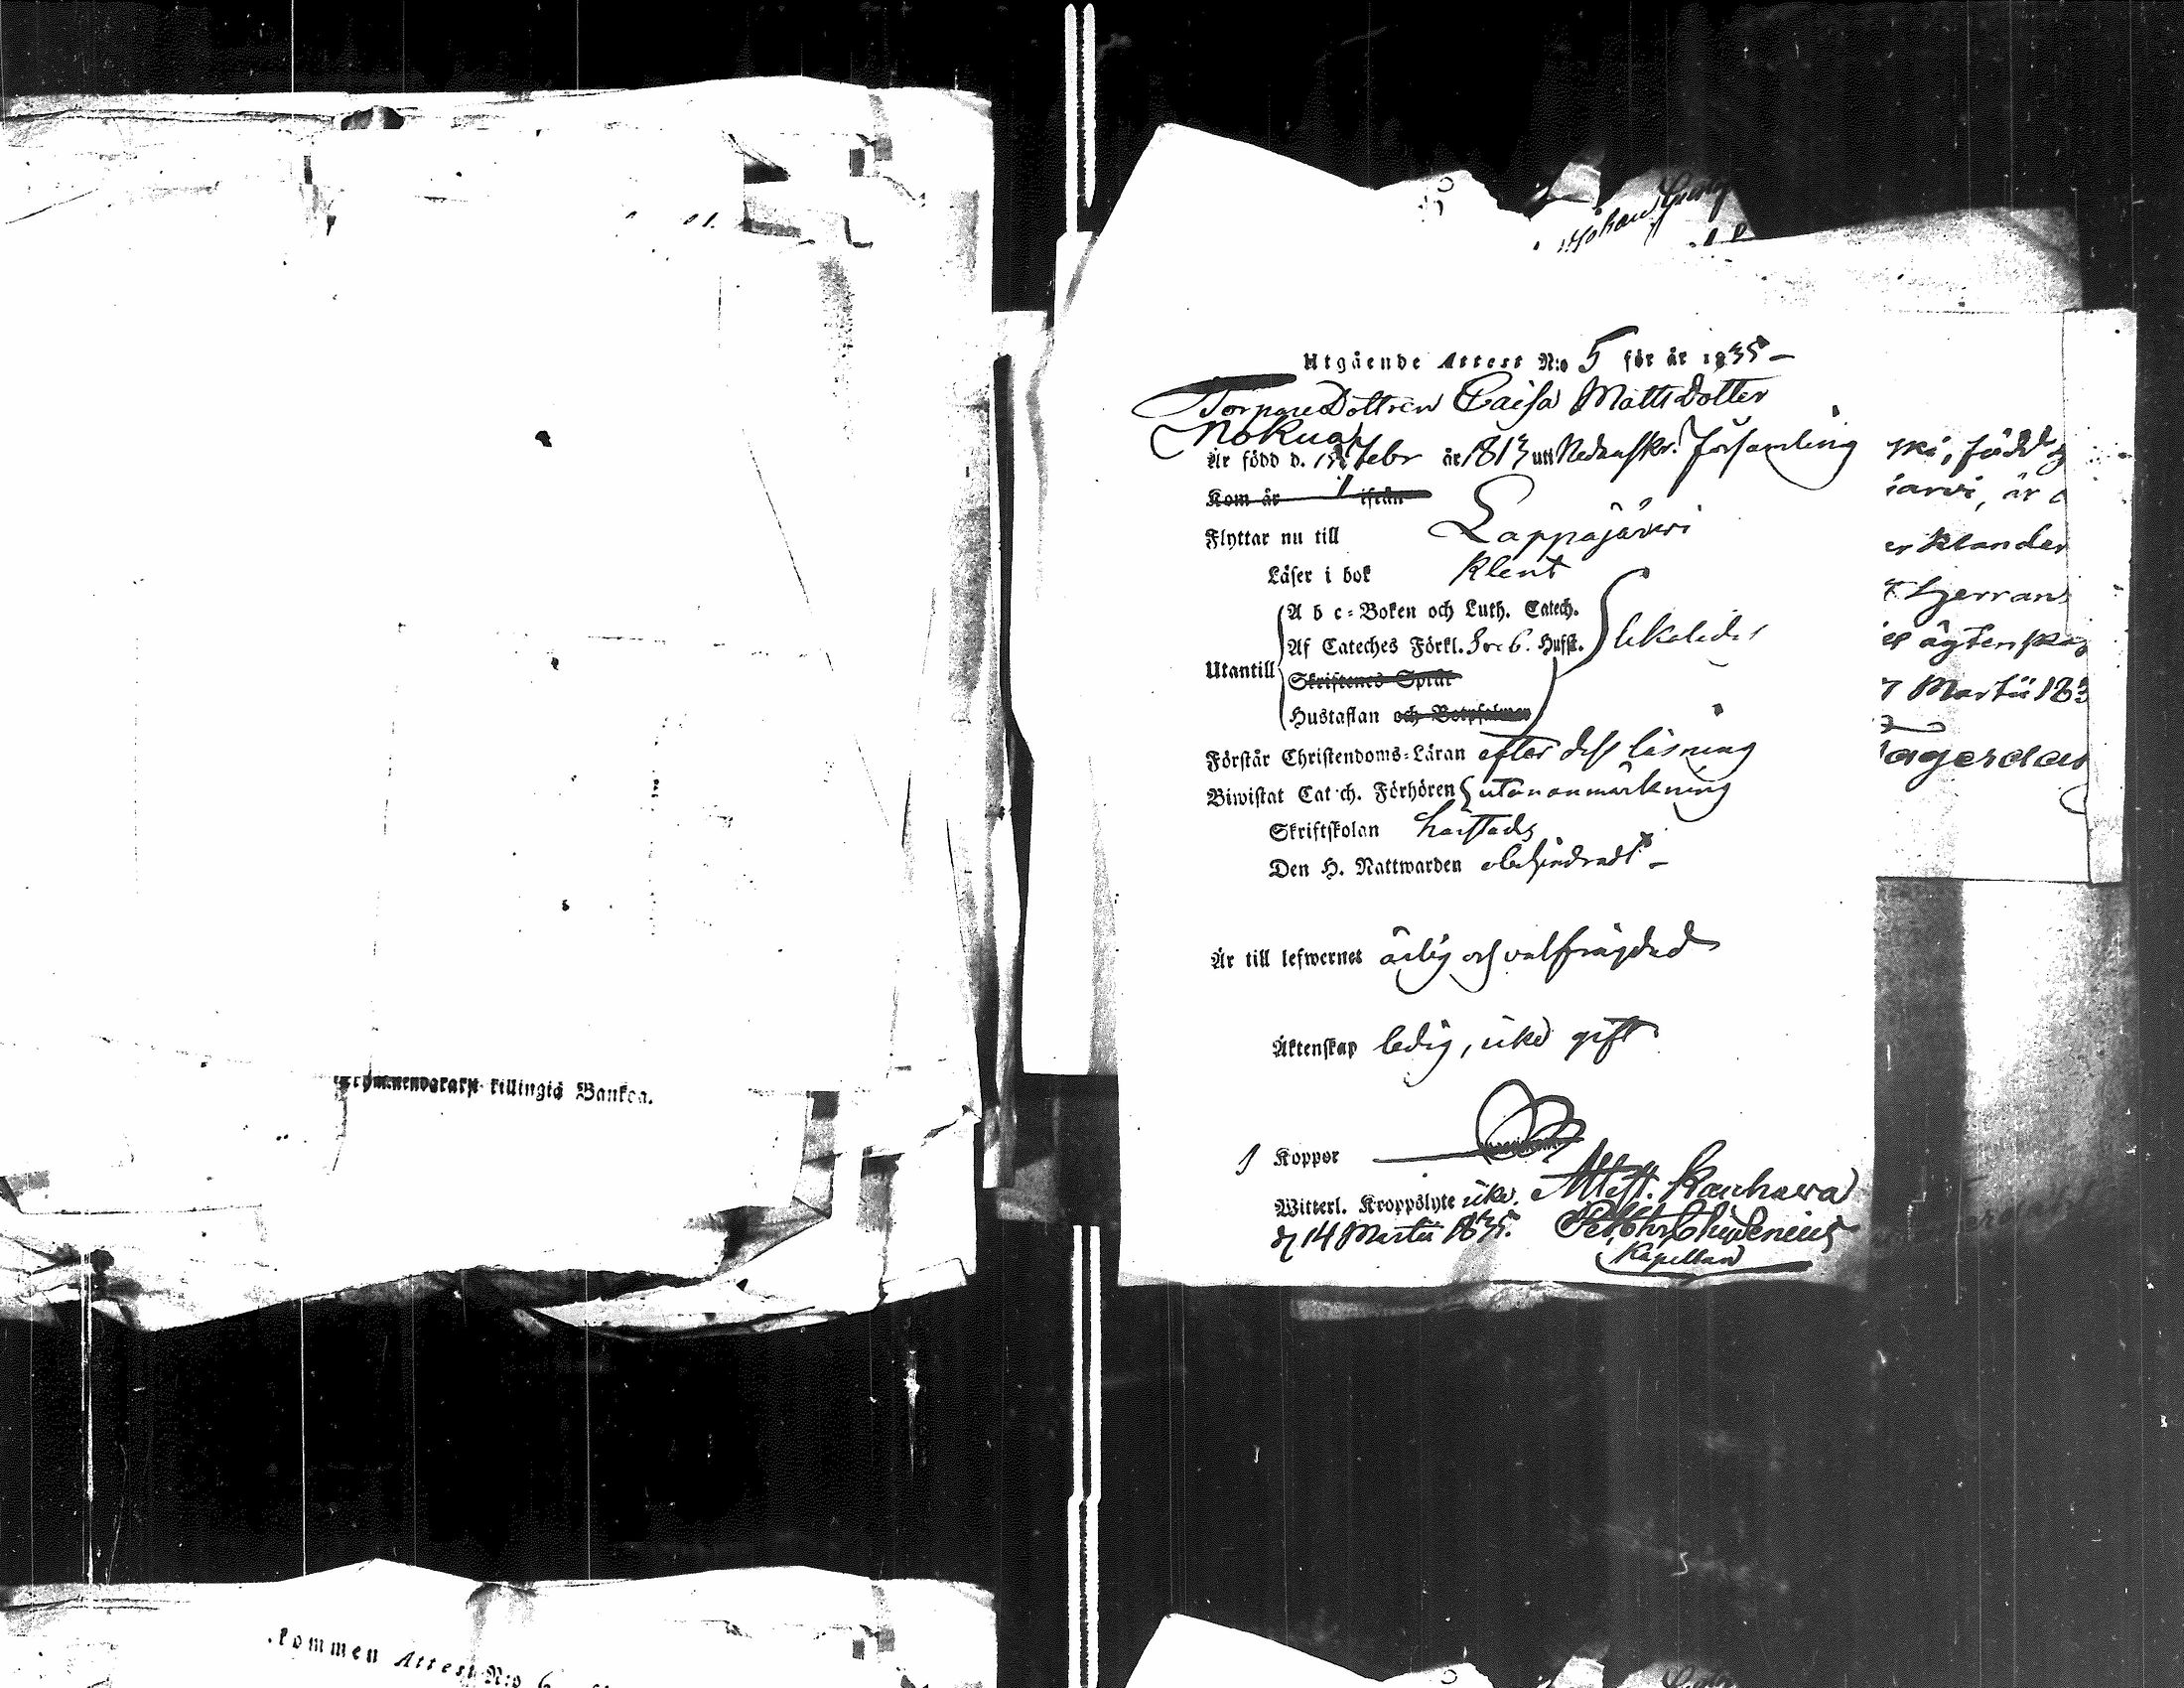 killingiä Bankoa.
kommen Attest N:o 6
Johan Gust
Utgående Attest N:o 5 för år 1835 –
Torpare Dottren Caisa Matts Dotter
Nokua
Är född d. Febr år 1813 uti Nedanskr. Församling
Kom år ifrån
Flyttar nu till Lappajärwi
Läser i bok klent
A b c-Boken och Luth. Catech.
Af Cateches Förkl. 3 6. Hufst. likaledes
Utantill
Skriftenes Språk
Hustaflan och Botpsalmer
Förstår Christendoms-Läran efter dess läsning
Biwistat Catech. Förhören utan anmärkning
Skriftskolan härstädes
Den H. Nattwarden obehindradt –
Är till lefwernet ärlig och välfrägdad
Äktenskap ledig, icke gift
1 Koppor
Witterl. Kroppslyte icke. Attest. Kauhava
d 14 Martii 1835. Chydenius
Kapellan
ski, född
järvi, är
er klander
t Herrans
ägtenskap
7 Martii 183
agerdau